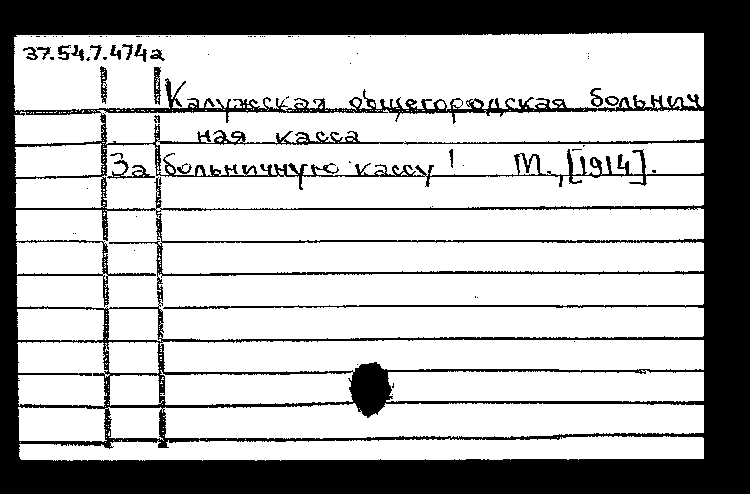 37.54.7.474а
Калужская общегородская больнич
ная касса
За больничную кассу! М., [1914].